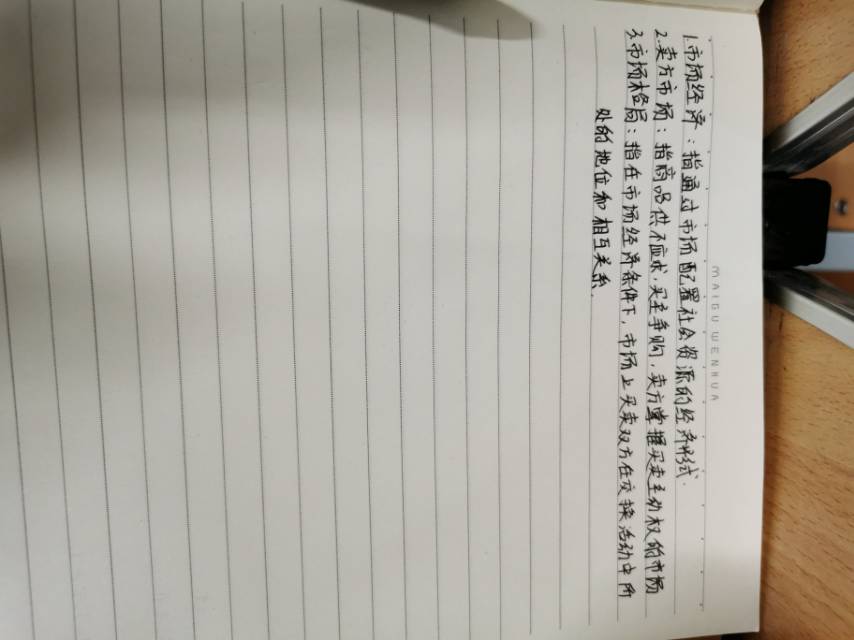 MAIGU WENHUA
1.市场经济：指通过市场配置社会资源的经济形式.
2.卖方市场：指商品供不应求,买主争购,卖方掌握买卖主动权的市场
3.市场格局：指在市场经济条件下,市场上买卖双方在交换活动中所
处的地位和相互关系.